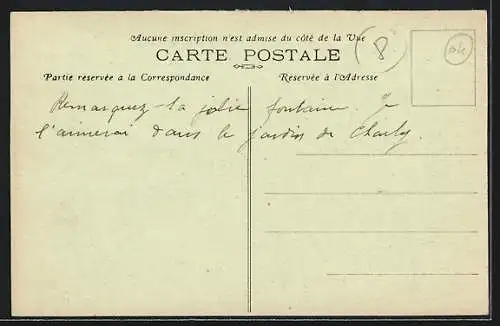 Aucune inscription n'est admise du côté de la Vue
CARTE POSTALE
Partie réservée a la Correspondance
Réservée à l'Adresse
(8)
Remarquez la jolie fontaine. Je
l'aimerai dans le jardin de Charly.